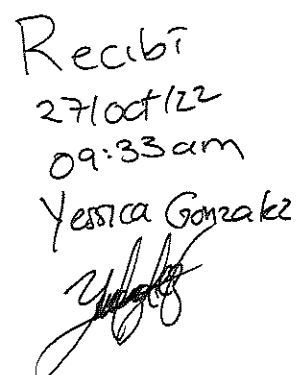 Recibí
27/oct/22
09:33am
Yessica Gonzalez